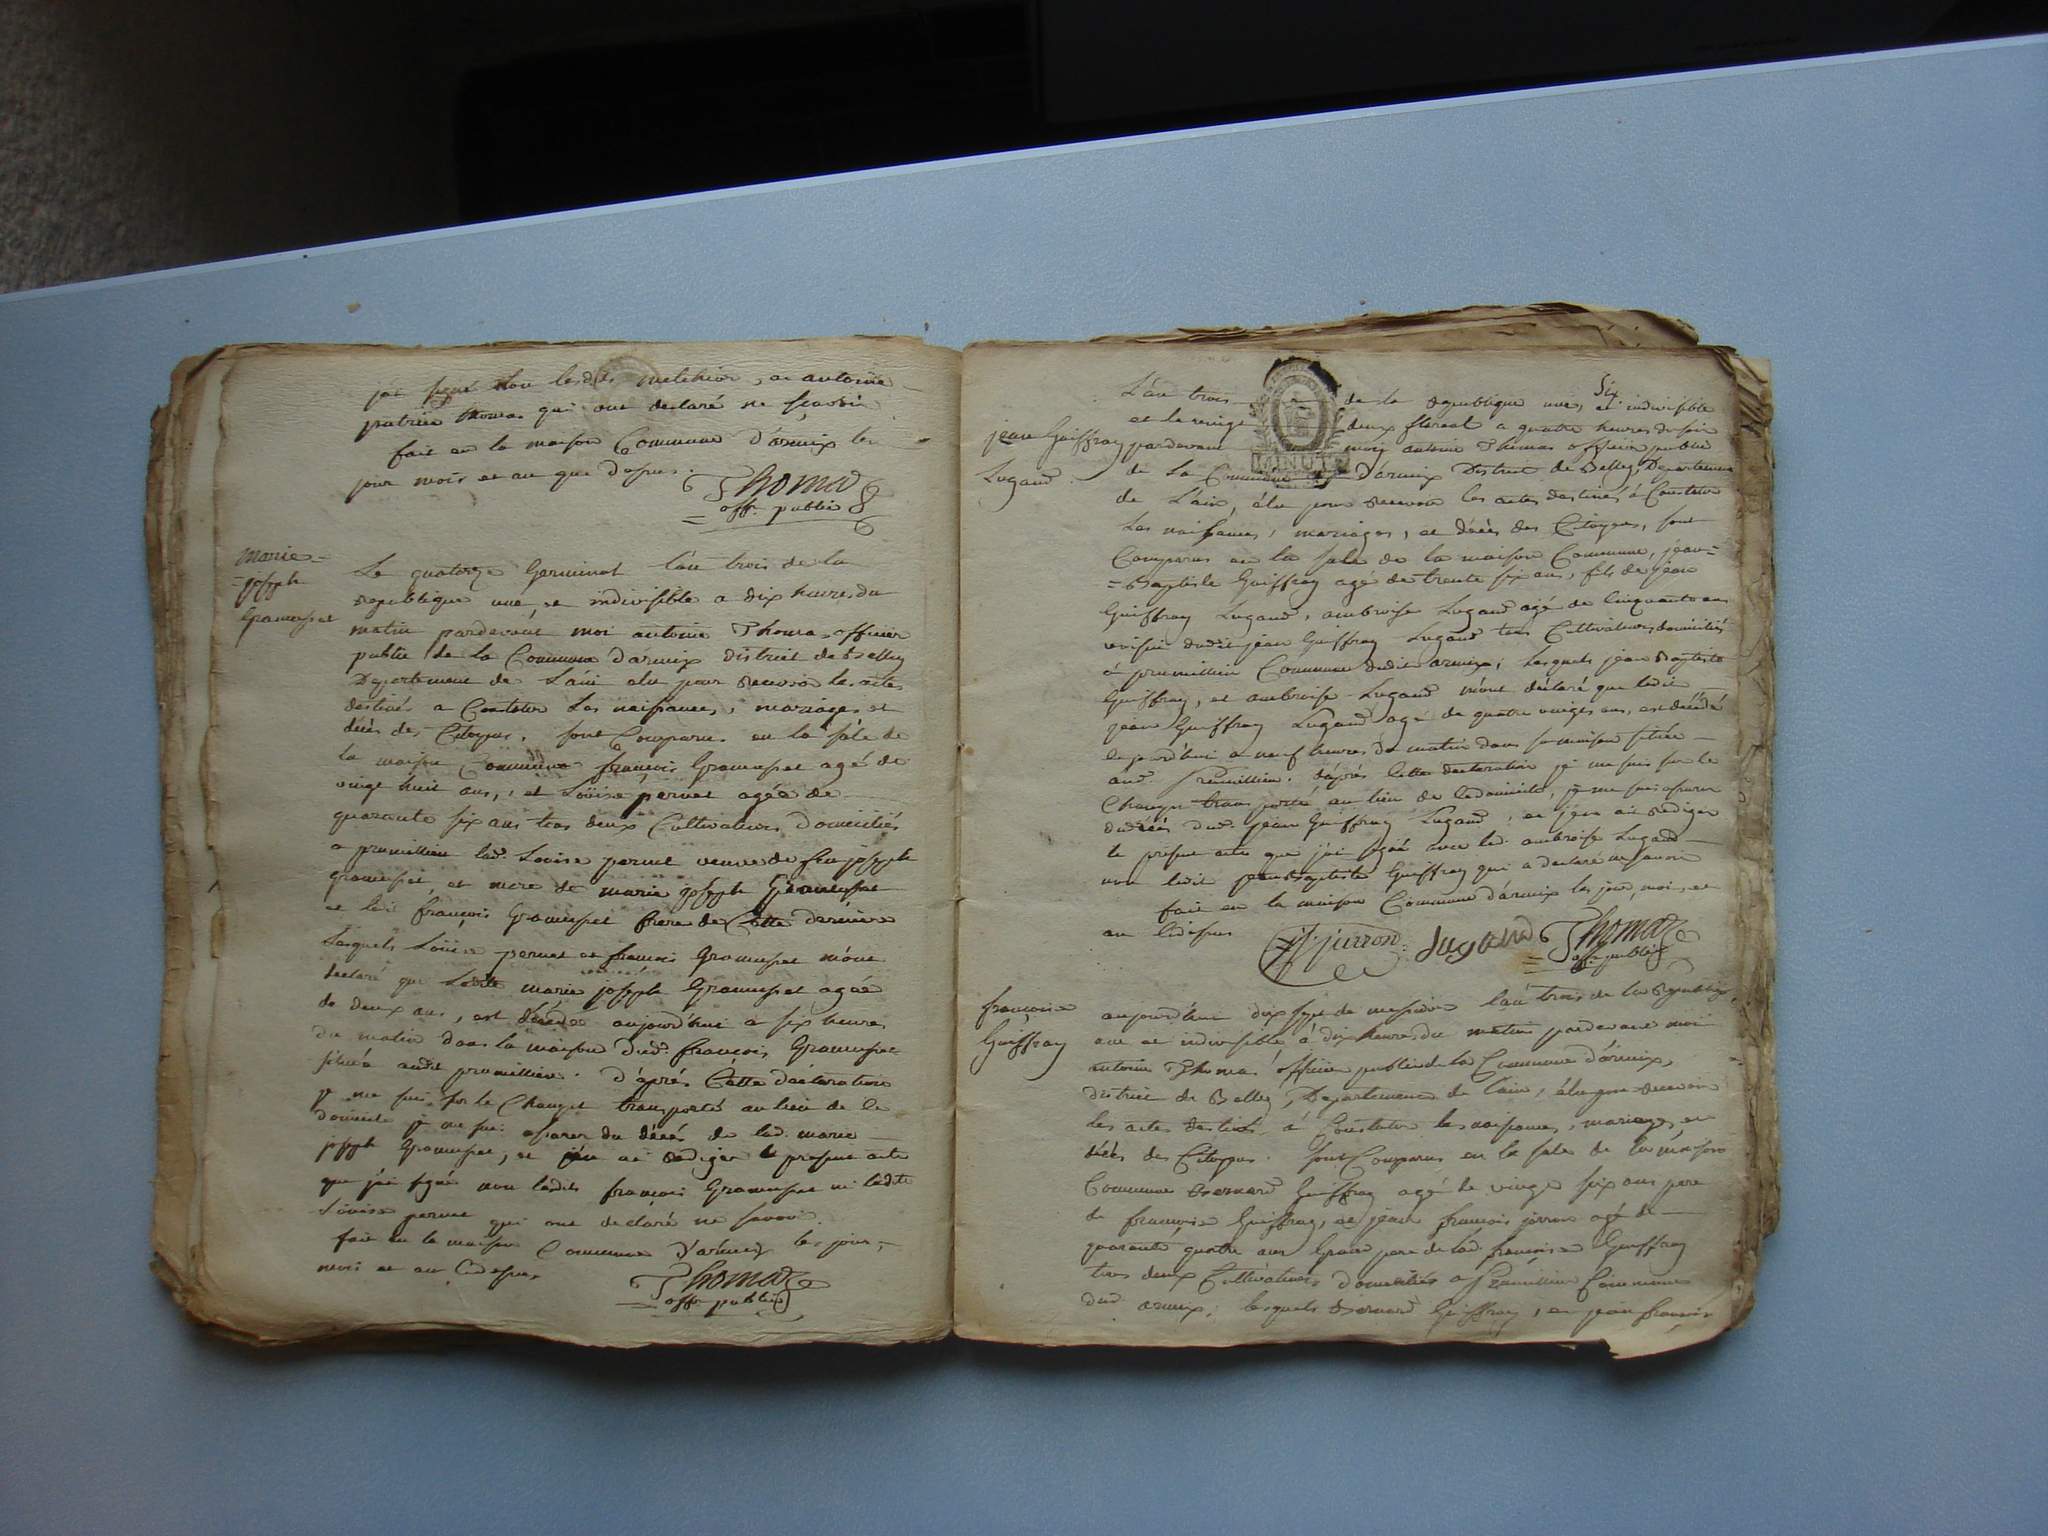 jai signé non lesdits melchior, et antoine
patrice thomas qui ont declaré ne scavoir
fait en la maison Commune d'armix les
jour mois et an que dessus.
Thomas
off. public
marie-
-joseph
Gramusset
Le quatorze Germinal l'an trois de la
Republique une, et indivisible a dix heures du
matin pardevant moi antoine Thomas officier
public de la Commune d'armix District de Belley
Departement de L'ain elu pour recevoir les actes
destinés a Constater Les naissances, mariages et
décès des Citoyens, sont Comparus en la sale de
la maison Commune françois Gramusset agé de
vingt huit ans, et Loüise pernet agée de
quarante six ans tous deux Cultivateurs Domiciliés
a premillieu lad. Louise pernet veuve de feu joseph
gramusset, et mere de marie joseph Gramusset
et led. françois Gramusset frere de Cette derniere
Lesquels Loüise pernet et francois Gramusset m'ont
declaré que Ladite marie joseph Gramusset agée
de deux ans, est décédée aujourd'hui a six heures
du matin dans la maison dud. françois Gramusset
située audit premillieu. D'après Cette déclaration
je me suis sur le Champ transporté au lieu de ce
domicile je me suis assuré du décès de lad. marie
joseph Gramusset, et j'en ai rediger le present acte
que j'ai signé non lesdits françois Gramusset ni ladite
Loüise pernet qui ont declaré ne savoir
fait en la maison Commune d'armix les jour,
mois et an Cidessus,
Thomas
off. public
jean Guiffray
Lugand
L'an trois de la Republique une, et indivisible
six
et le vingt deux floreal a quatre heures du soir
pardevant moy antoine Thomas officier public
MINUTE
de la Commune d'armix District de Belley, Departement
de L'ain, élu pour recevoir les actes destinés à Constater
Les naissances, mariages, et décès des Citoyens, sont
Comparus en la sale de la maison Commune, jean-
-Baptiste Guiffray agé de trente six ans, fils de jean
Guiffray Lugand, ambroise Lugand agé de Cinquante ans
voisin dudit jean Guiffray Lugand tous Cultivateurs domiciliés
à premillieu Commune dudit armix; Lesquels jean Baptiste
Guiffray, et ambroise Lugand m'ont déclaré que ledit
jean Guiffray Lugand agé de quatre vingts ans, est décédé
aujourd'hui a neuf heures du matin dans sa maison située
aud. Premillieu. d'après Cette declaration je me suis sur le
Champ transporté au lieu de ce domicile, je me suis assuré
du décès dud. jean Guiffray Lugand, et j'en ai rediger
le present acte que j'ai signé avec led. ambroise Lugand
non ledit jean Baptiste Guiffray qui a declaré ne savoir
fait en la maison Commune d'armix les jour, mois, et
an Cidessus
Lugand Thomas
off. public
françoise
Guiffray
aujourd'hui dix sept de messidor l'an trois de la Republique
une et indivisible à dix heures du matin pardevant moi
antoine Thomas officier public de la Commune d'armix,
district de Belley, Departement de l'ain, élu pour recevoir
les actes destinés à Constater les naissances, mariages, et
décès des Citoyens. sont Comparus en la sale de la maison
Commune Bernard Guiffray agé de vingt six ans pere
de françoise Guiffray, et jean françois jorron agé de
quarante quatre ans Grand pere de lad. françoise Guiffray
tous deux Cultivateurs domiciliés a Premillieu Commune
dud. armix; lesquels Bernard Guiffray, et jean françois